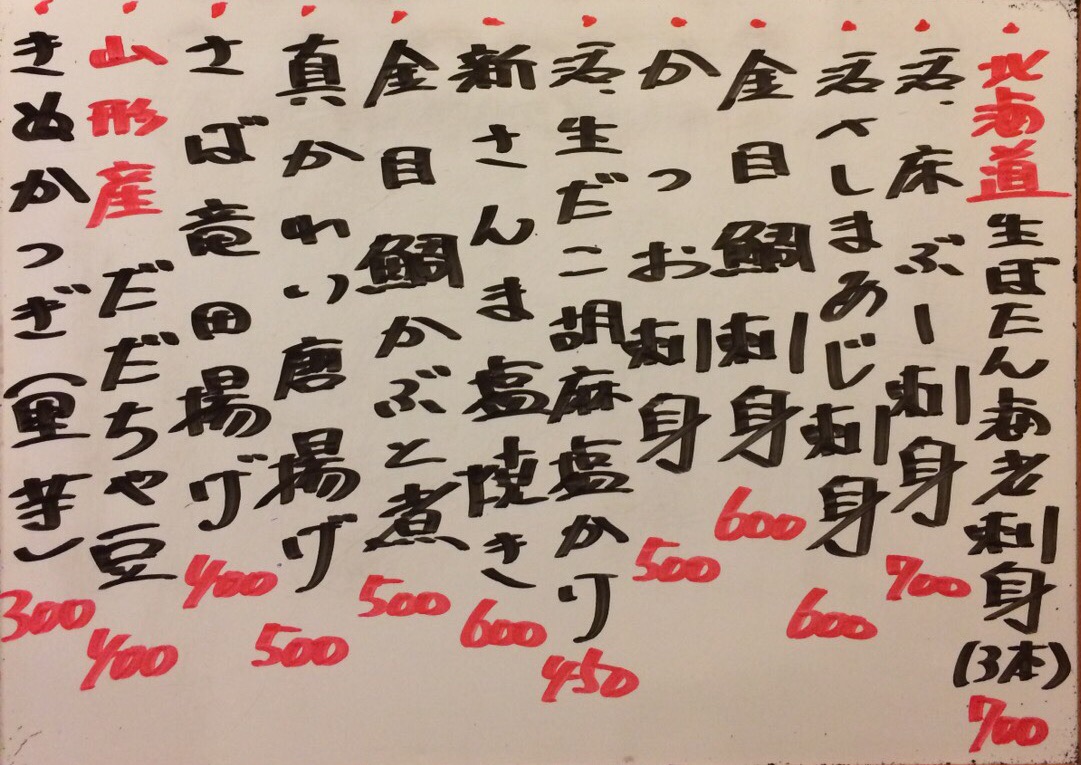 北海道生ぼたん海老刺身(3本) 700
活床ぶし刺身 700
活〆しまあじ刺身 600
金目鯛刺身 600
かつお刺身 500
活生だこ胡麻塩かけ 450
新さんま塩焼き 600
金目鯛かぶと煮 500
真かれい唐揚げ 500
さば竜田揚げ 400
山形産だだちゃ豆 400
きぬかつぎ(里芋) 300